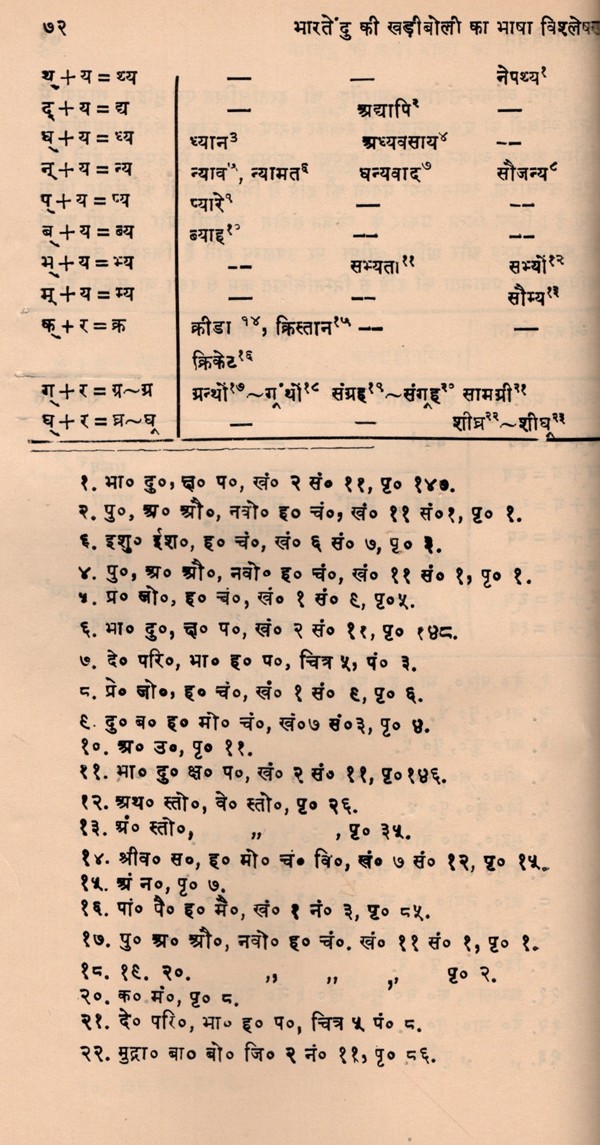 ७२ भारतेंदु की खड़ीबोली का भाषा विश्लेषण
थ्+य=थ्य — — नेपथ्य१
द्+य=द्य — अद्यापि२
ध्+य=ध्य ध्यान३ अध्यवसाय४ --
न्+य=न्य न्याव५, न्यामत६ धन्यवाद७ सौजन्य८
प्+य=प्य प्यारे९ — --
ब्+य=ब्य ब्याह१० -- --
भ्+य=भ्य -- सभ्यता११ सभ्यों१२
म्+य=म्य — — सौम्य१३
क्+र=क्र क्रीडा १४, क्रिस्तान१५ -- —
क्रिकेट१६
ग्+र=ग्र~ग्र ग्रन्थों१७~गृंथों१८ संग्रह१९~संगृह२० सामग्री२१
घ्+र=घ्र~घृ — — शीघ्र२२~शीघृ२३
१. भा० दु०, क्ष० प०, खं० २ सं० ११, पृ० १४७.
२. पु०, अ० औ०, नवो० ह० चं०, खं० ११ सं०१, पृ० १.
६. इशु० ईश०, ह० चं०, खं० ६ सं० ७, पृ० ३.
४. पु०, अ० औ०, नवो० ह० चं०, खं० ११ सं० १, पृ० १.
५. प्र० जो०, ह० चं०, खं० १ सं० ९, पृ०५.
६. भा० दु०, क्ष० प०, खं० २ सं० ११, पृ० १४८.
७. दे० परि०, भा० ह० प०, चित्र ५, पं० ३.
८. प्रे० जो०, ह० चं०, खं० १ सं० ९, पृ० ६.
९. दु० ब० ह० मो० चं०, खं०७ सं०३, पृ० ४.
१०. अ० उ०, पृ० ११.
११. भा० दु० क्ष० प०, खं० २ सं० ११, पृ०१४६.
१२. अथ० स्तो०, वे० स्तो०, पृ० २६.
१३. अं० स्तो०, ,, , पृ० ३५.
१४. श्रीव० स०, ह० मो० चं० वि०, खं० ७ सं० १२, पृ० १५.
१५. अं न०, पृ० ७.
१६. पां० पै० ह० मै०, खं० १ नं० ३, पृ० ८५.
१७. पु० अ० औ०, नवो० ह० चं०. खं० ११ सं० १, पृ० १.
१८. १९. २०. ,, ,, ,, पृ० २.
२०. क० मं०, पृ० ८.
२१. दे० परि०, भा० ह० प०, चित्र ५ पं० ८.
२२. मुद्रा० बा० बो० जि० २ नं० ११, पृ० ८६.